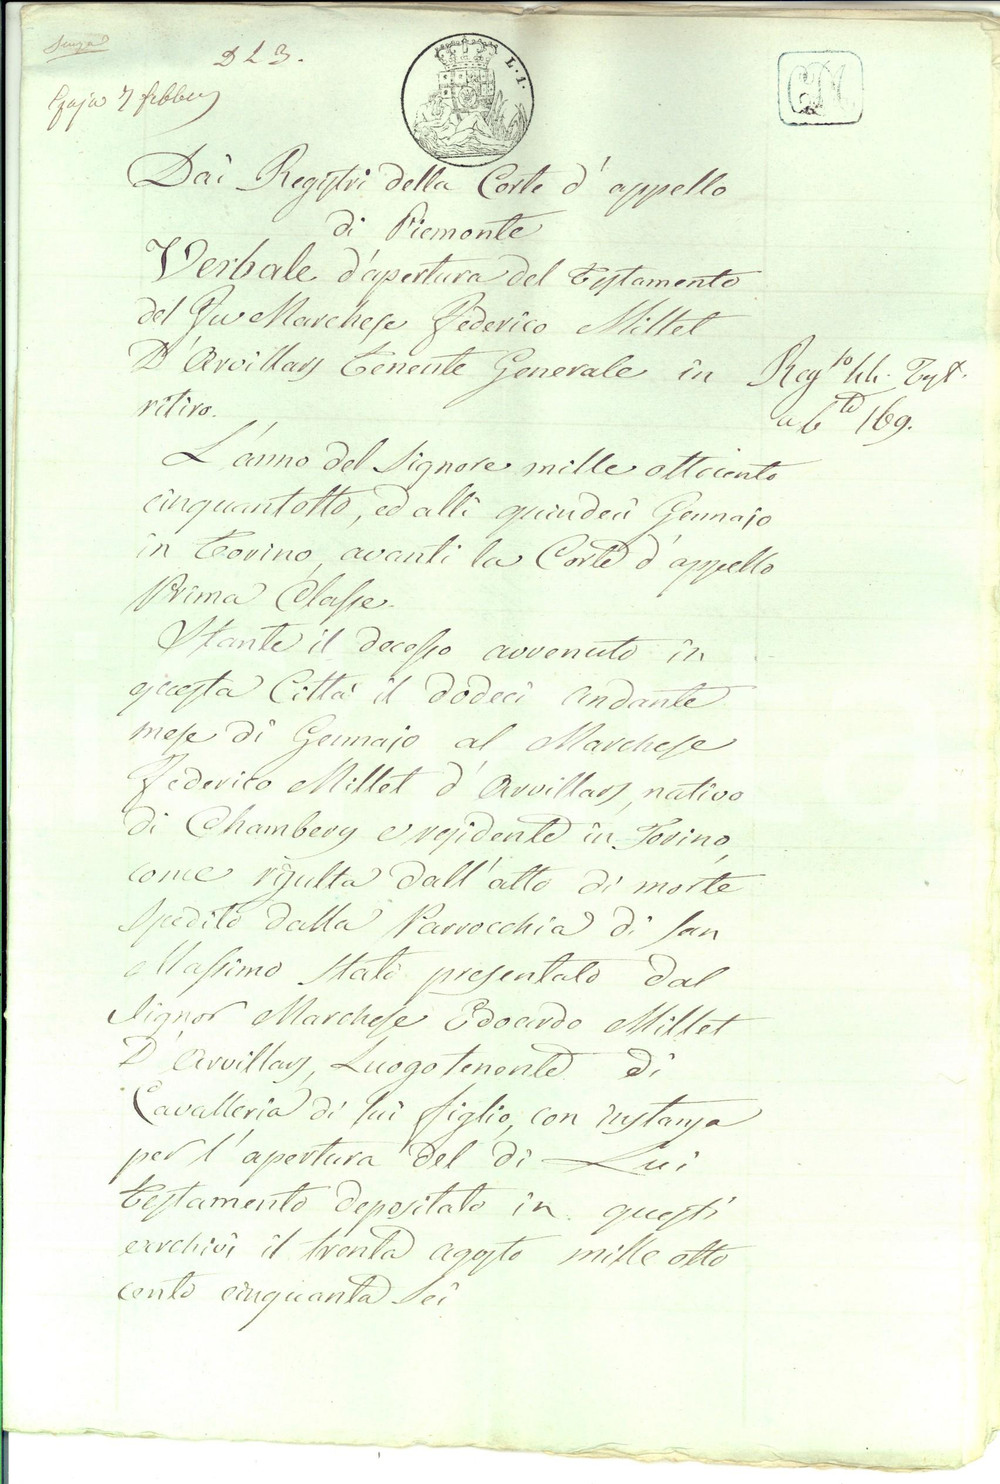 D L 3.
7 febbr
L. 1.
Dai Registri della Corte d'appello
di Piemonte
Verbale d'apertura del Testamento
del Fu Marchese Federico Millet
D'Arvillars Tenente Generale in
ritiro.
Reg.ro 44. Test.
a 6 to 169.
L'anno del Signore mille ottocento
cinquantotto, ed alli quindeci Gennajo
in Torino, avanti la Corte d'appello
Prima Classe.
Stante il decesso avvenuto in
questa Città il dodeci andante
mese di Gennajo al Marchese
Federico Millet d'Arvillars, nativo
di Chambery e residente in Torino,
come risulta dall'atto di morte
spedito dalla Parrocchia di San
Massimo stato presentato dal
Signor Marchese Edoardo Millet
D'Arvillars, Luogotenente di
Cavalleria di lui figlio, con instanza
per l'apertura del di Lui
Testamento depositato in questi
archivi il trenta agosto mille otto
cento cinquanta sei